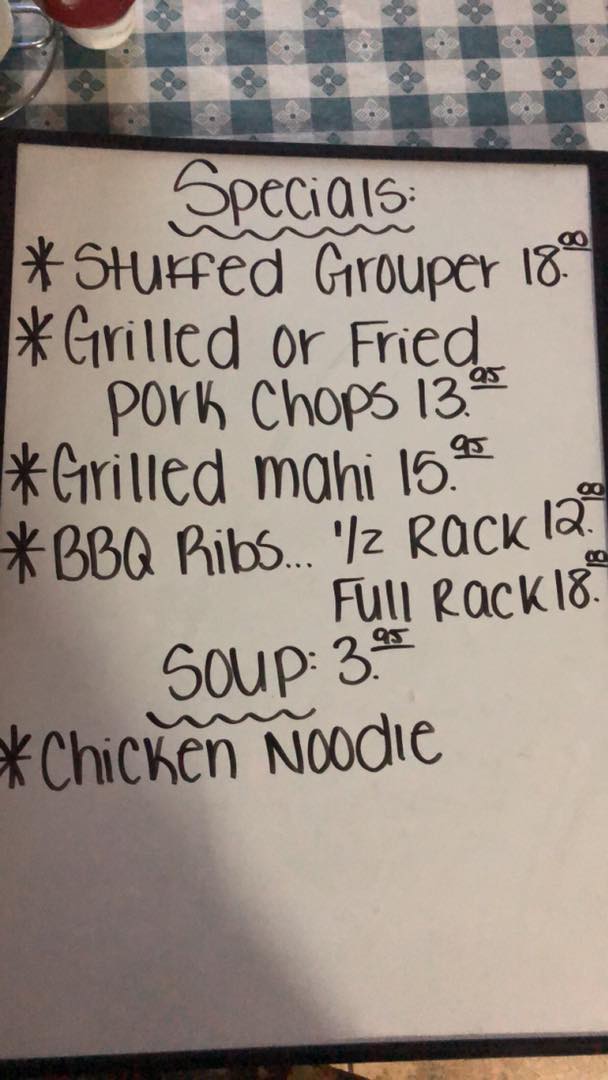 Specials:
*Stuffed Grouper 18.00
*Grilled or Fried
Pork Chops 13.95
*Grilled mahi 15.95
*BBQ Ribs... 1/2 Rack 12.00
Full Rack 18.00
Soup: 3.95
*Chicken Noodle